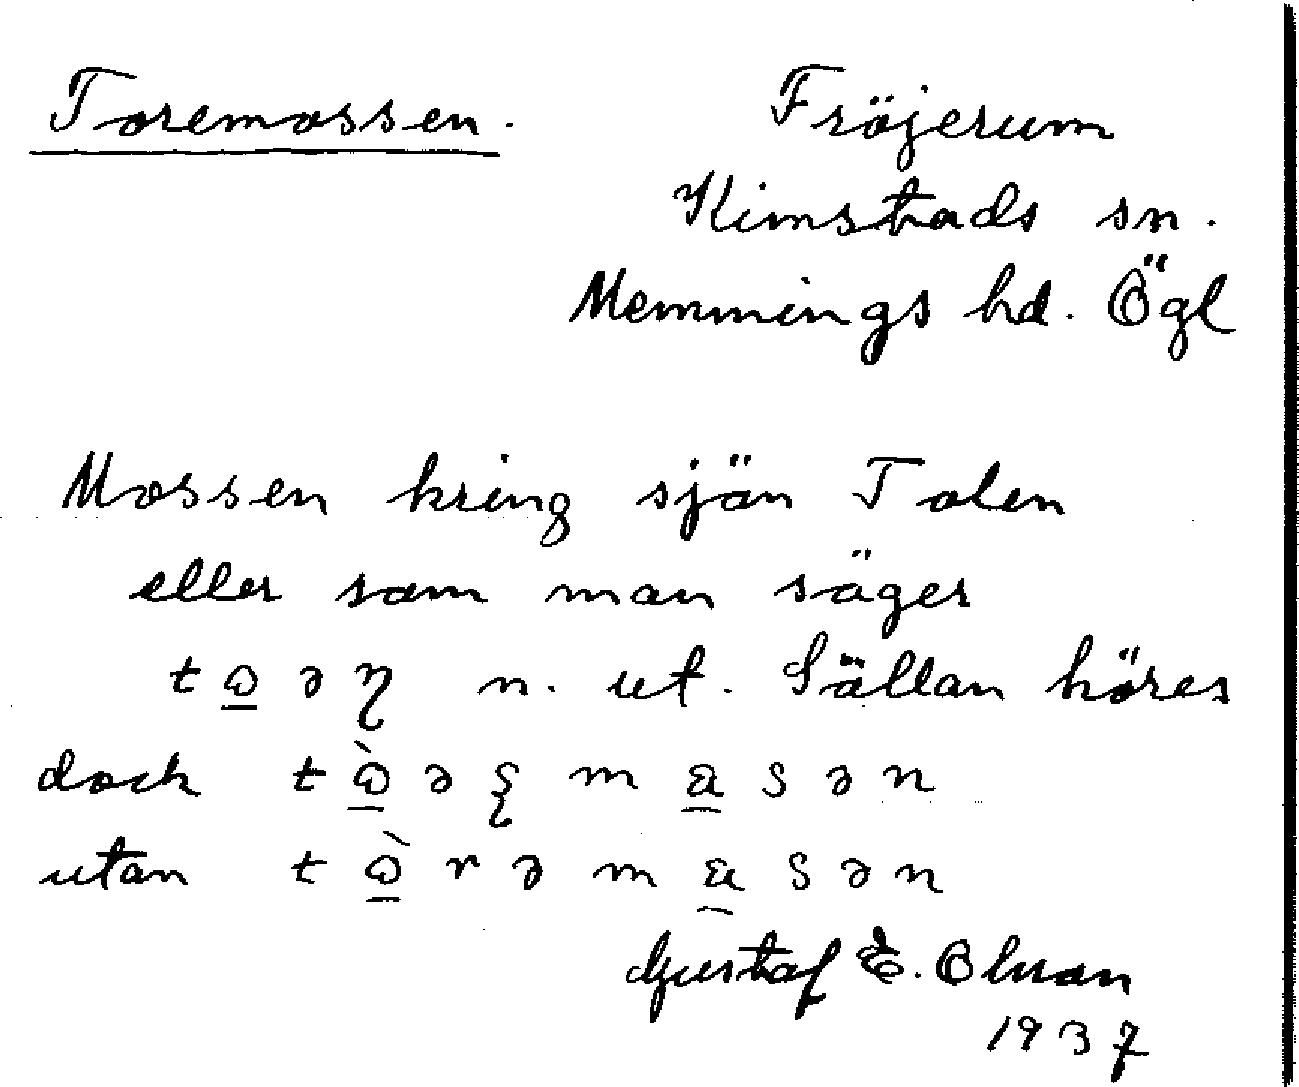 Toremossen. Fröjerum
Kimstads sn.
Memmings hd. Ögl
Mossen kring sjön Tolen
eller som man säger
n. ut. Sällan höres
dock
utan
Gustaf E.
1937